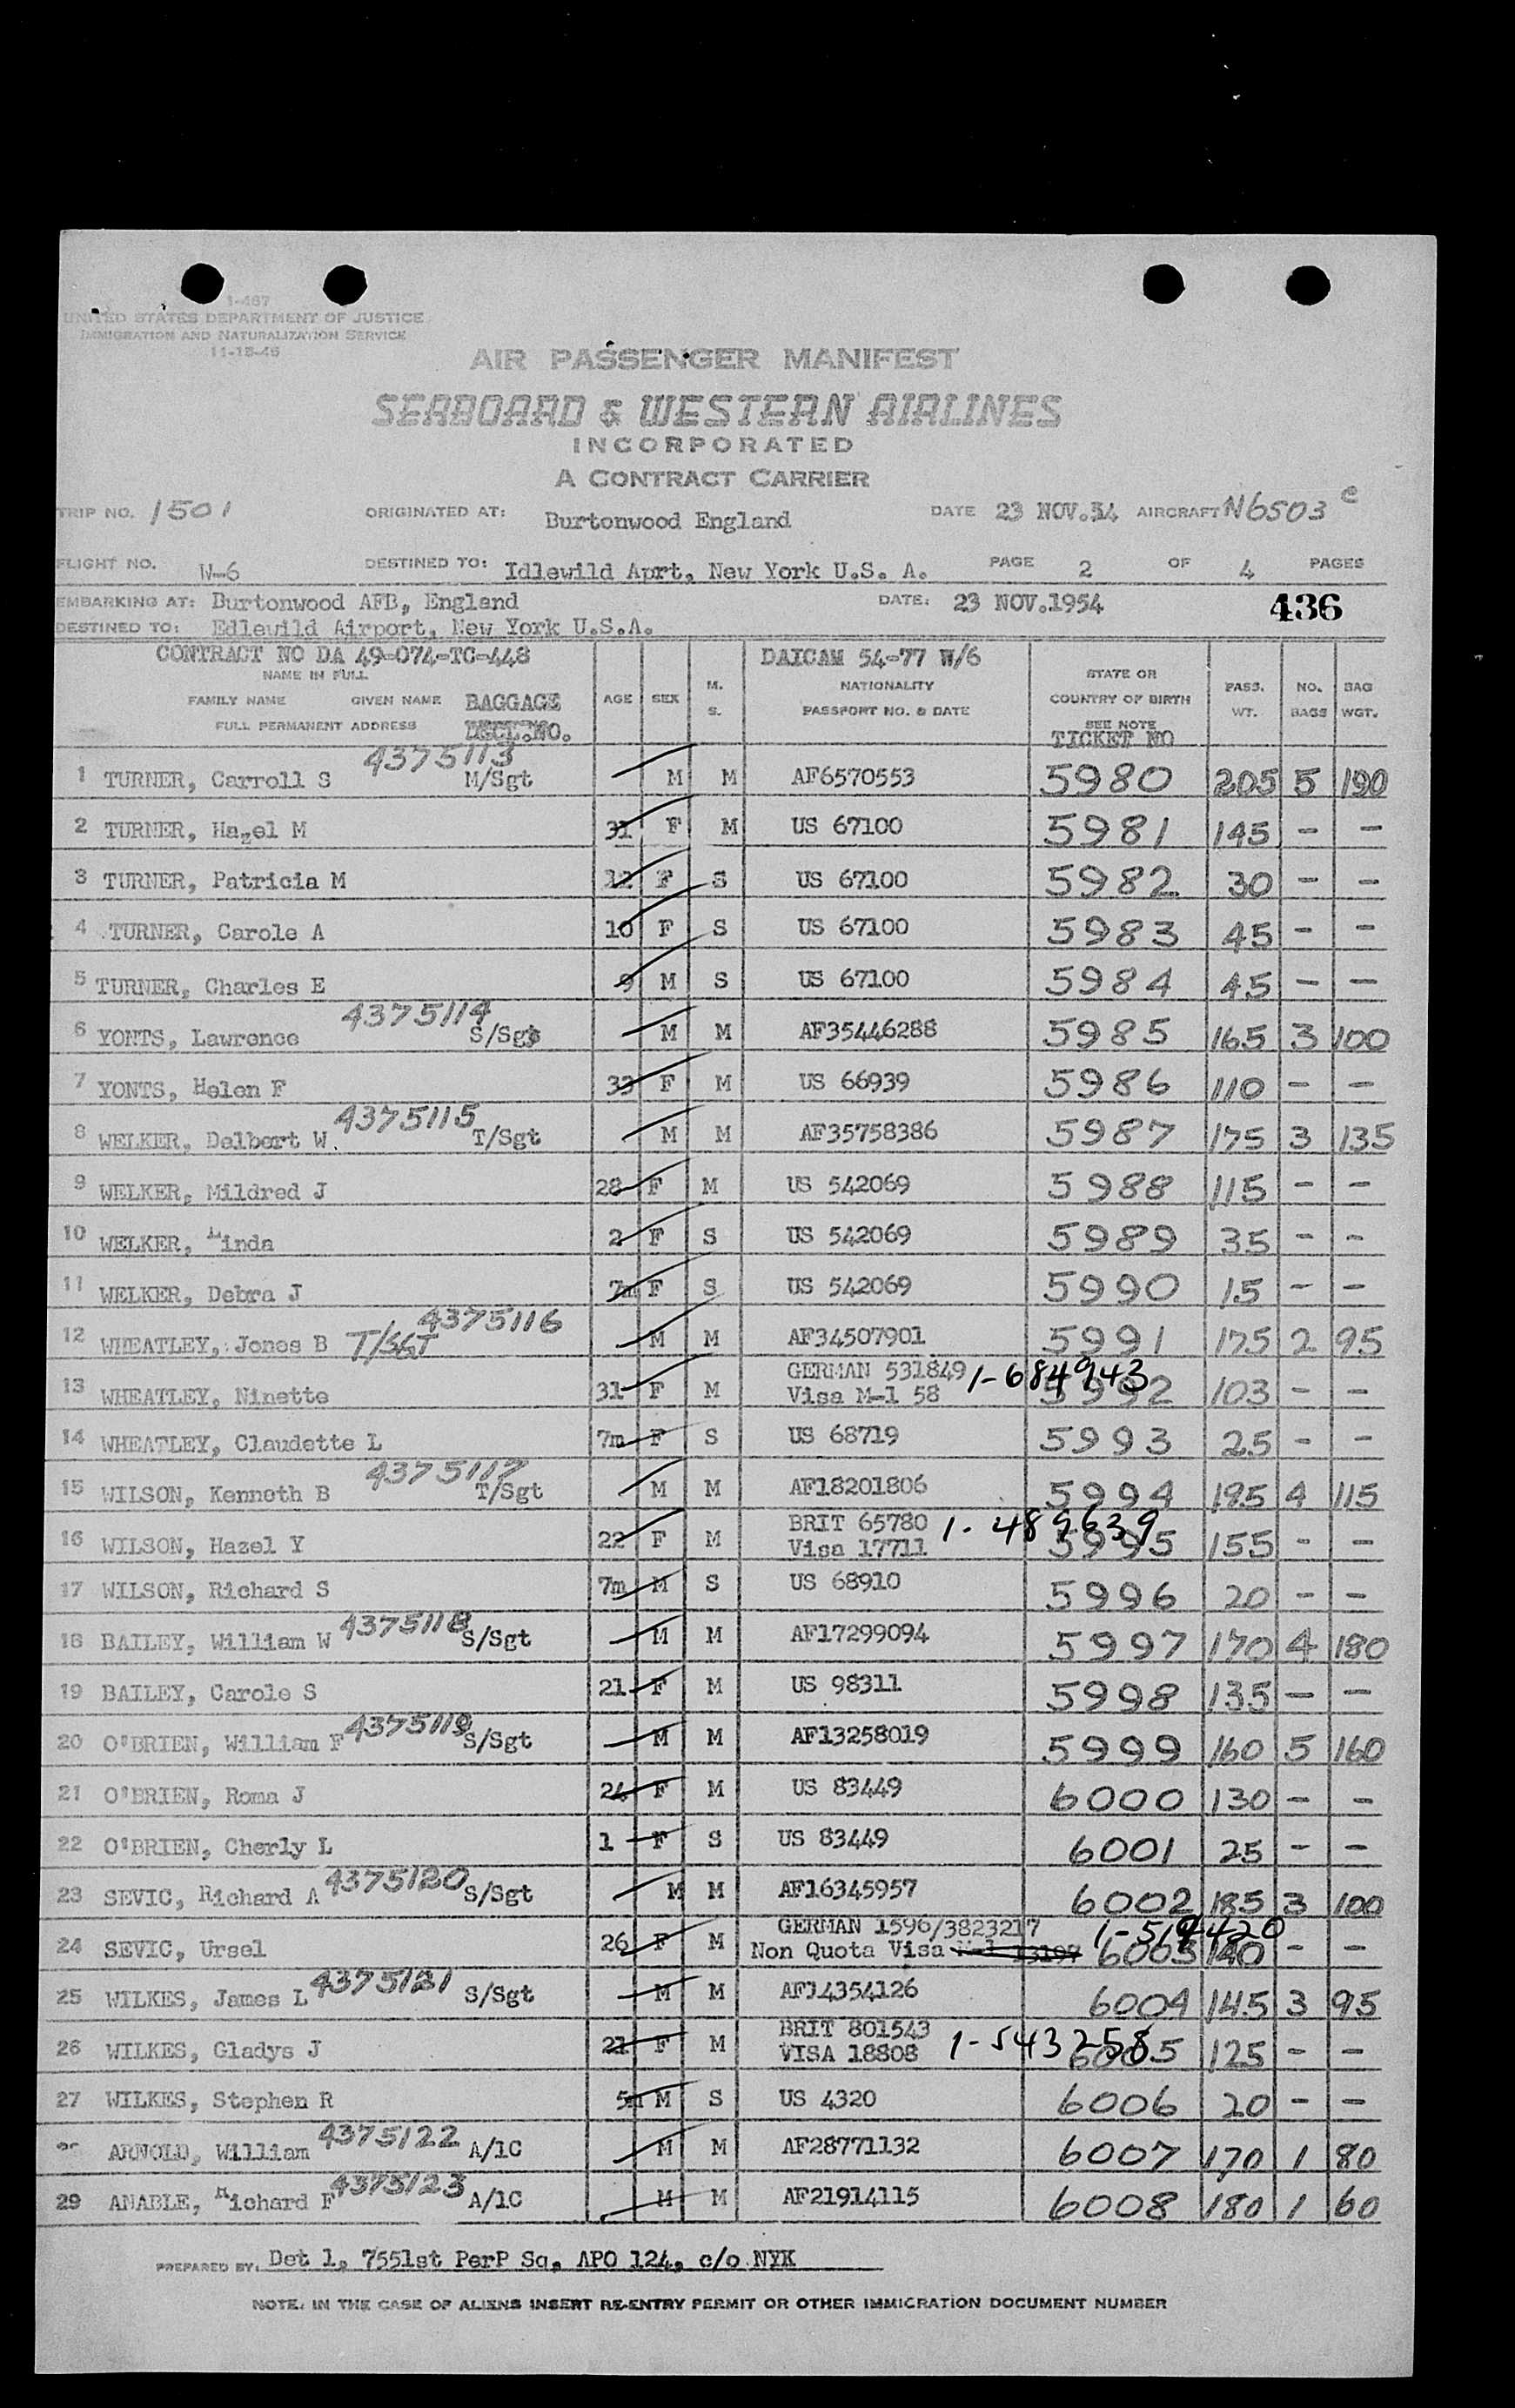 1-467
UNITED STATES DEPARTMENT OF JUSTICE
IMMIGRATION AND NATURALIZATION SERVICE
11-15-46
AIR PASSENGER MANIFEST
SEABOARD & WESTERN AIRLINES
INCORPORATED
A CONTRACT CARRIER
TRIP NO. 1501 ORIGINATED AT: Burtonwood England DATE 23 NOV.54 AIRCRAFT N6503 c
FLIGHT NO. W-6 DESTINED TO: Idlewild Aprt, New York U.S. A. PAGE 2 OF 4 PAGES
EMBARKING AT: Burtonwood AFB, England DATE: 23 NOV.1954 436
DESTINED TO: Edlewild Airport, New York U.S.A.
CONTRACT NO DA 49-074-TC-448 DAICAM 54-77 W/6
NAME IN FULL
FAMILY NAME GIVEN NAME BAGGAGE DECL.NO.
FULL PERMANENT ADDRESS
AGE SEX M. S. NATIONALITY PASSPORT NO. & DATE STATE OR COUNTRY OF BIRTH SEE NOTE TICKET NO PASS. WT. NO. BAGS BAG WGT.
1 TURNER, Carroll S 4375113 M/Sgt M M AF6570553 5980 205 5 190
2 TURNER, Hazel M 31 F M US 67100 5981 145 - -
3 TURNER, Patricia M 12 F S US 67100 5982 30 - -
4 TURNER, Carole A 10 F S US 67100 5983 45 - -
5 TURNER, Charles E 9 M S US 67100 5984 45 - -
6 YONTS, Lawrence 4375114 S/Sgt M M AF35446288 5985 165 3 100
7 YONTS, Helen F 33 F M US 66939 5986 110 - -
8 WELKER, Delbert W. 4375115 T/Sgt M M AF35758386 5987 175 3 135
9 WELKER, Mildred J 28 F M US 542069 5988 115 - -
10 WELKER, Linda 2 F S US 542069 5989 35 - -
11 WELKER, Debra J 7m F S US 542069 5990 15 - -
12 WHEATLEY, Jones B T/SGT 4375116 M M AF34507901 5991 175 2 95
13 WHEATLEY, Ninette 31 F M GERMAN 531849 Visa M-1 58 1-684943 5992 103 - -
14 WHEATLEY, Claudette L 7m F S US 68719 5993 25 - -
15 WILSON, Kenneth B 4375117 T/Sgt M M AF18201806 5994 195 4 115
16 WILSON, Hazel Y 22 F M BRIT 65780 Visa 17711 1-489639 5995 155 - -
17 WILSON, Richard S 7m M S US 68910 5996 20 - -
18 BAILEY, William W 4375118 S/Sgt M M AF17299094 5997 170 4 180
19 BAILEY, Carole S 21 F M US 98311 5998 135 - -
20 O'BRIEN, William F 4375119 S/Sgt M M AF13258019 5999 160 5 160
21 O'BRIEN, Roma J 24 F M US 83449 6000 130 - -
22 O'BRIEN, Cherly L 1 F S US 83449 6001 25 - -
23 SEVIC, Richard A 4375120 S/Sgt M M AF16345957 6002 185 3 100
24 SEVIC, Ursel 26 F M GERMAN 1596/3823217 Non Quota Visa 1-519420 6003 140 - -
25 WILKES, James L 4375121 S/Sgt M M AF14354126 6004 145 3 95
26 WILKES, Gladys J 21 F M BRIT 801543 VISA 18808 1-543258 6005 125 - -
27 WILKES, Stephen R 5m M S US 4320 6006 20 - -
ARNOLD, William 4375122 A/1C M M AF28771132 6007 170 1 80
29 ANABLE, Richard F 4375123 A/1C M M AF21914115 6008 180 1 60
PREPARED BY. Det 1, 7551st PerP Sq, APO 124, c/o NYK
NOTE. IN THE CASE OF ALIENS INSERT RE-ENTRY PERMIT OR OTHER IMMIGRATION DOCUMENT NUMBER